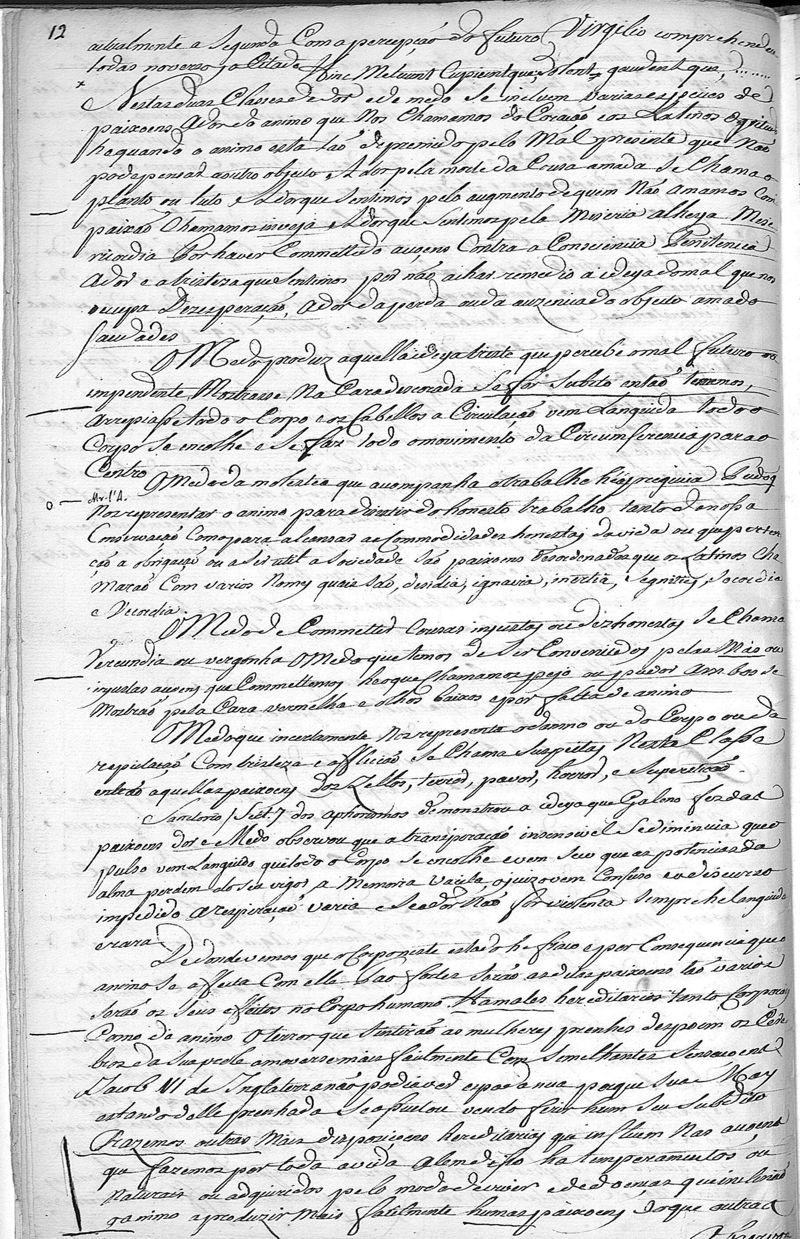 12
actualmente a Segunda Com a percepção do futuro Virgilio comprehendeu
todas no verso ja Citado Hinc Metuunt Cupiuntque dolent, gaudentque, ........
* Nestas duas Classes de dor e de medo se incluem varias especies de
paixoens A dor do animo que Nos Chamamos do Coração e os Latinos Egritudo
he quando o animo está tão deprimido pelo Mal presente que Não
pode pensar a outro objecto A dor pela morte da Cousa amada se Chama o
planto ou luto e A dor que sentimos pelo augmento de quem Não Amamos Com
paixão Chamamos inveja e A dor que sentimos pela Miseria alheya Mise
ricordia Por haver Commettido auçoens Contra a Consciencia Penitencia
A dor e a tristeza que sentimos por não achar remedio a ideya do mal que nos
ocupa Dezesperação, A dor da perda ou da auzencia do objecto amado
Saudades
O Medo produz aquella ideya triste que percebe o mal futuro ou
impendente Mostrasse Na Cara descorada Se for Subito então tememos,
Arrepiasse todo o Corpo e os Cabellos a Circulação vem Languida todo o
Corpo se encolhe e se faz todo o movimento da Circumferencia para o
Centro
O Medo da molestia que acompanha o trabalho he a preguiça
Nos representar o animo para divirtir do honesto trabalho tanto da nossa
Conservação Como para alcansar as Commodidades honestas da vida ou que perten
ção a obrigação ou a ser util a Sociedade São paixoens desordenadas que os Latinos Cha
Marão Com varios Nomes quais são desidia, ignavia, inertia, segnities, Socordia
e Vecordia.
O Medo de Commetter Cousas injustas ou dezhonestas se Chama
Verecundia ou vergonha O Medo que temos de Ser Convencidos pelas Más ou
injustas auçoens que Commettemos he o que Chamamos pejo ou pudor Ambos se
Mostrão pela Cara vermelha e olhos baixos e por falta de animo
O Medo que incertamente Nos representa o danno ou do Corpo ou da
reputação Com tristeza e aflição se Chama Suspeitas Nesta Classe
entrão aquellas paixoens dos Zellos, terror, pavor, horror, e Superstição
Santorio / Sect. 7 dos aphorismos demonstrou a ideya que Galeno fez das
paixoens dor e Medo observou que a transpiração insensivel Se diminuia que o
pulso vem Languido que todo o Corpo se encolhe e vem seco que as potencias da
alma perdem do seu vigor a Memoria vacila, o juizo vem Confuso e o discurso
impedido A respiração varia e Se a dor Não for violenta Sempre he languida
e rara
De donde vemos que o Corpo neste estado he fraco e por Consequencia que o
animo Se afeita Com elle São fortes Serão as duas paixoens tão varios
Serão os Seus effeitos no Corpo humano Ha males hereditarios tanto Corporais
Como de animo O terror que Sentirão as mulheres prenhes despoem os Cere
bros da sua prole a moverse mais facilmente Com semelhantes Sensaçoens
Jacob VI de Inglaterra não podia ver espada nua porque sua May
estando delle prenhada Se assustou vendo ferir hum Seu Subdito
Trazemos outras Mais dispoziçoens hereditarias que influem Nas auçoens
que fazemos por toda a vida Alem disso ha temperamentos ou
Naturais ou adquiridos pelo modo de viver e de doenças que inclinão
o animo a produzir mais facilmente humas paixoens, do que outras